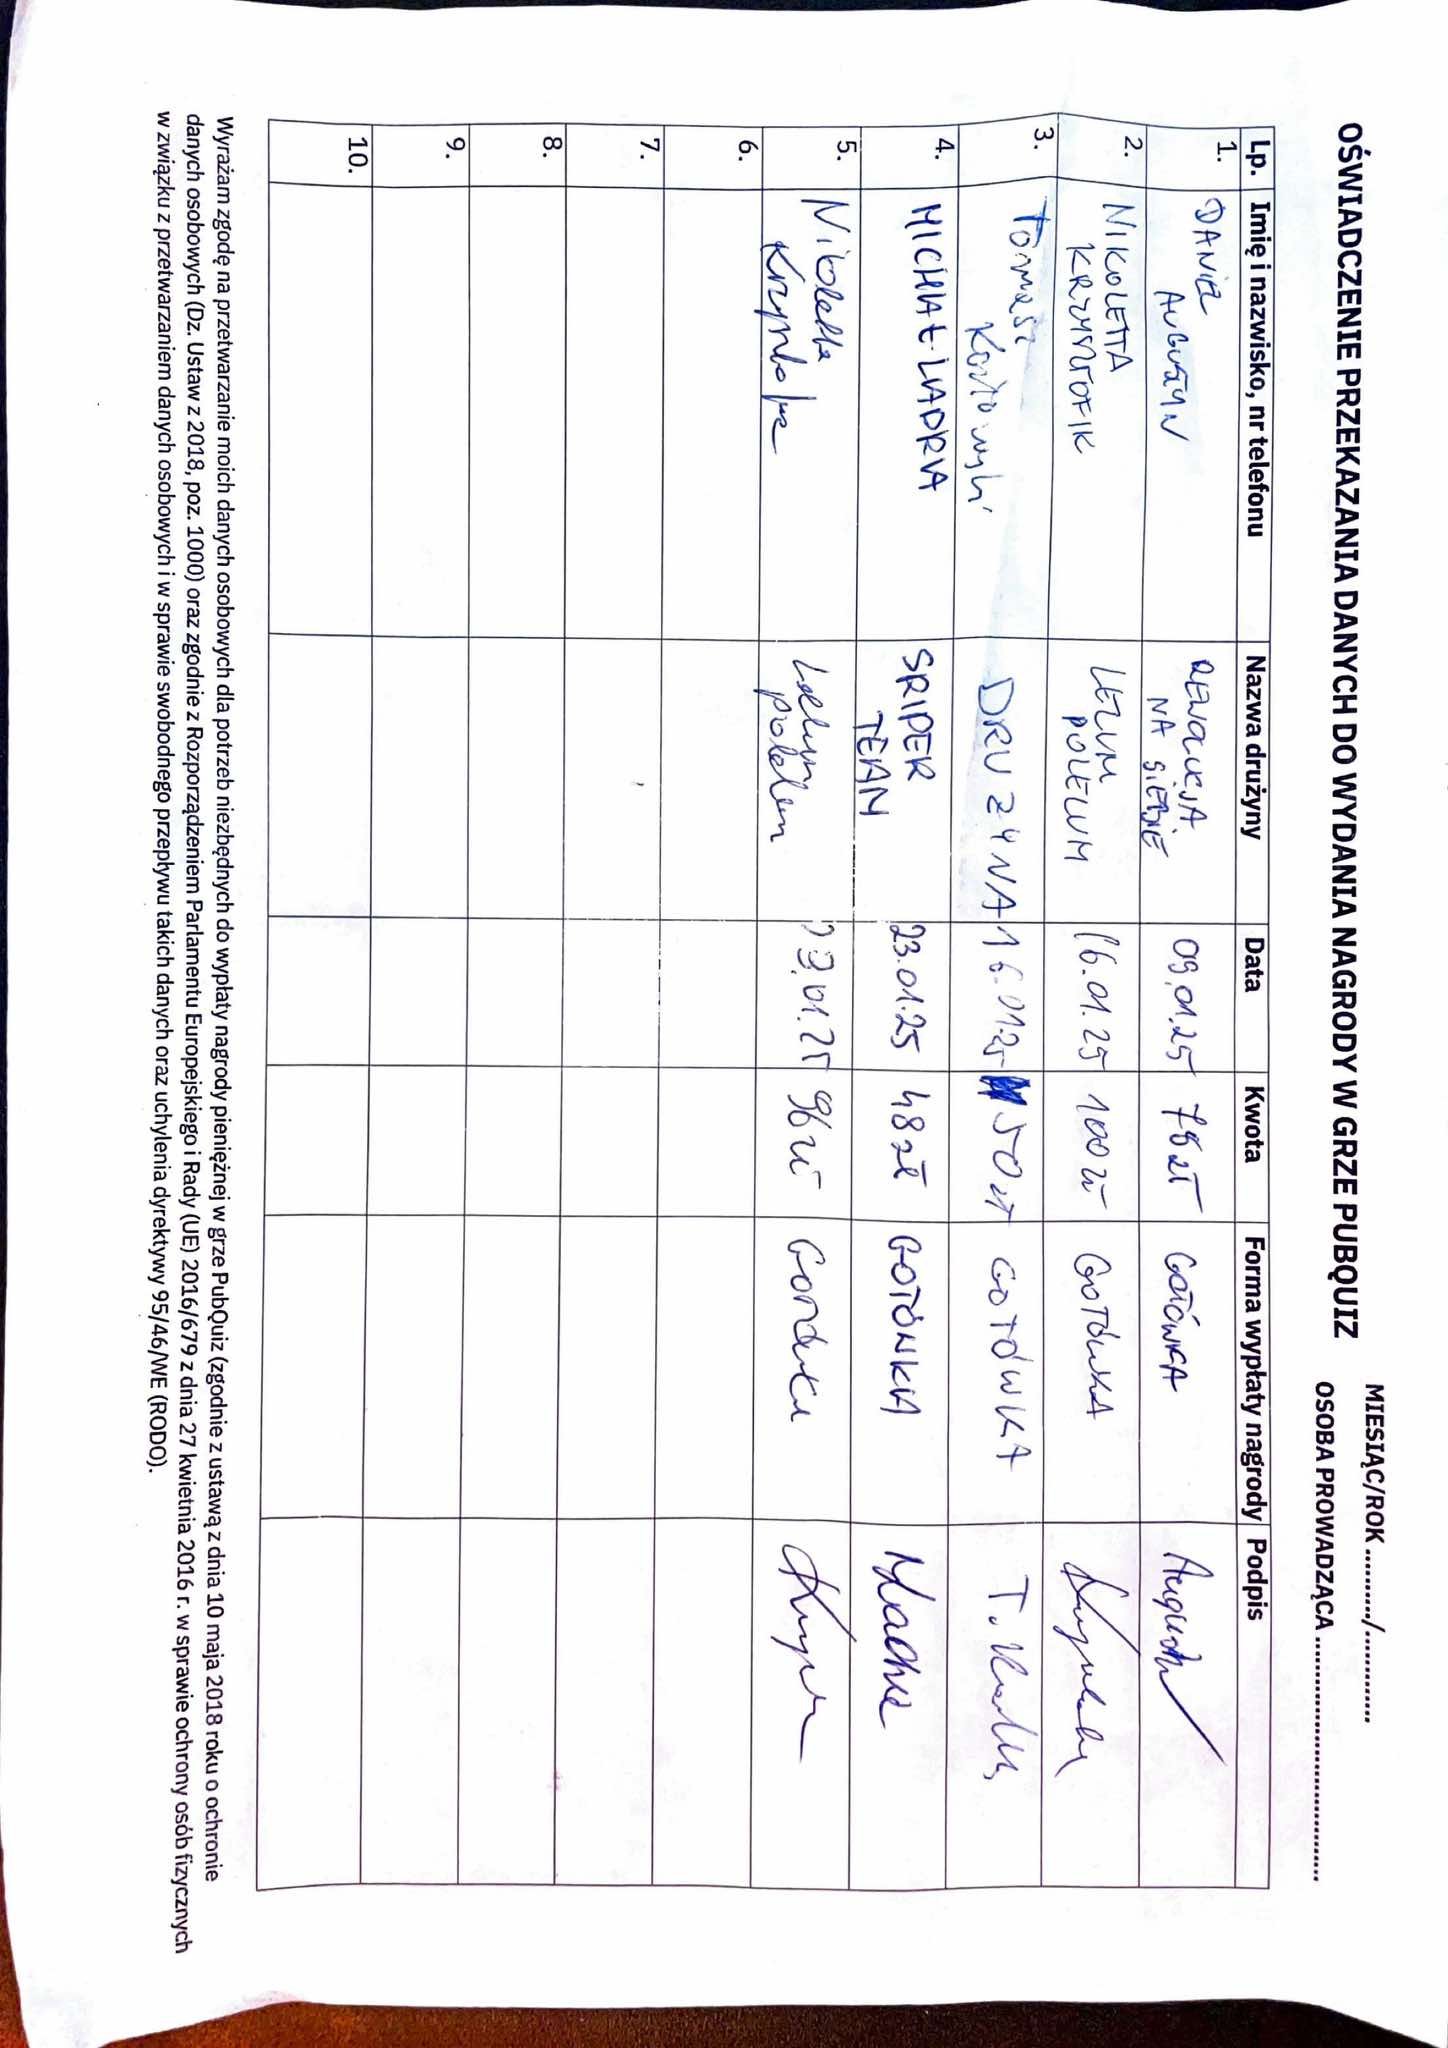 OŚWIADCZENIE PRZEKAZANIA DANYCH DO WYDANIA NAGRODY W GRZE PUBQUIZ
MIESIĄC/ROK ........../............
OSOBA PROWADZĄCA ................................
Lp. Imię i nazwisko, nr telefonu Nazwa drużyny Data Kwota Forma wypłaty nagrody Podpis
1. DANIEL AUGUSTYN REWOLUCJA NA SIEBIE 09.01.25 78 zł GOTÓWKA
2. NIKOLETTA KRZYSZTOFIK LELUM POLELUM 16.01.25 100 zł GOTÓWKA
3. Tomasz DRUŻYNA A 16.01.25 50 zł GOTÓWKA
4. MICHAŁ TEAM 23.01.25 48 zł GOTÓWKA
5. Nikoletta Lelum polelum 96 zł
6.
7.
8.
9.
10.
Wyrażam zgodę na przetwarzanie moich danych osobowych dla potrzeb niezbędnych do wypłaty nagrody pieniężnej w grze PubQuiz (zgodnie z ustawą z dnia 10 maja 2018 roku o ochronie
danych osobowych (Dz. Ustaw z 2018, poz. 1000) oraz zgodnie z Rozporządzeniem Parlamentu Europejskiego i Rady (UE) 2016/679 z dnia 27 kwietnia 2016 r. w sprawie ochrony osób fizycznych
w związku z przetwarzaniem danych osobowych i w sprawie swobodnego przepływu takich danych oraz uchylenia dyrektywy 95/46/WE (RODO).